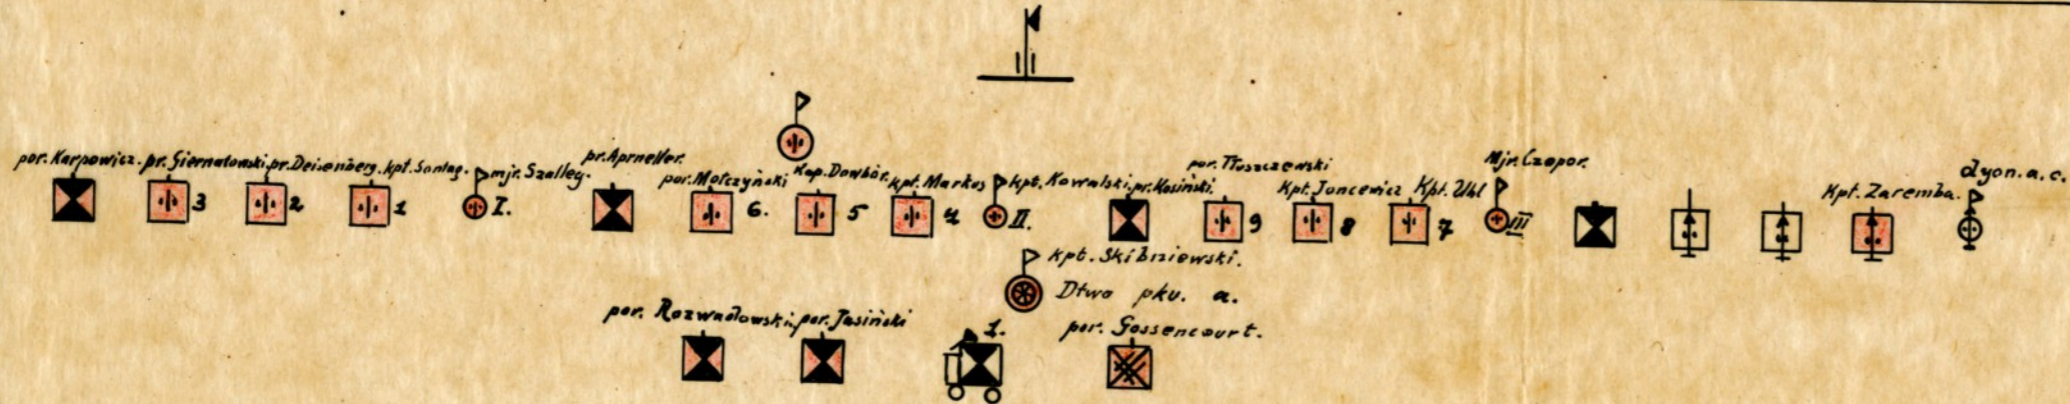 por. Karpowicz. pr. Giernatowski. pr. Deisenberg. kpt. Sontag. mjr. Szalley. por. Mołczyński Kap. Dowbór. kpt. Markus kpt. Kowalski. pr. Kosiński. por. Tłuszczewski Kpt. Joncewicz Kpt. Uhl Mjr. Czopor. Kpt. Zaremba. dyon. a. c.
3 2 1 I. 6. 5 4 II. 9 8 7 III
kpt. Skibniewski.
Dtwo pku. a.
por. Rozwadowski. por. Jasiński 1. por. Gossencourt.